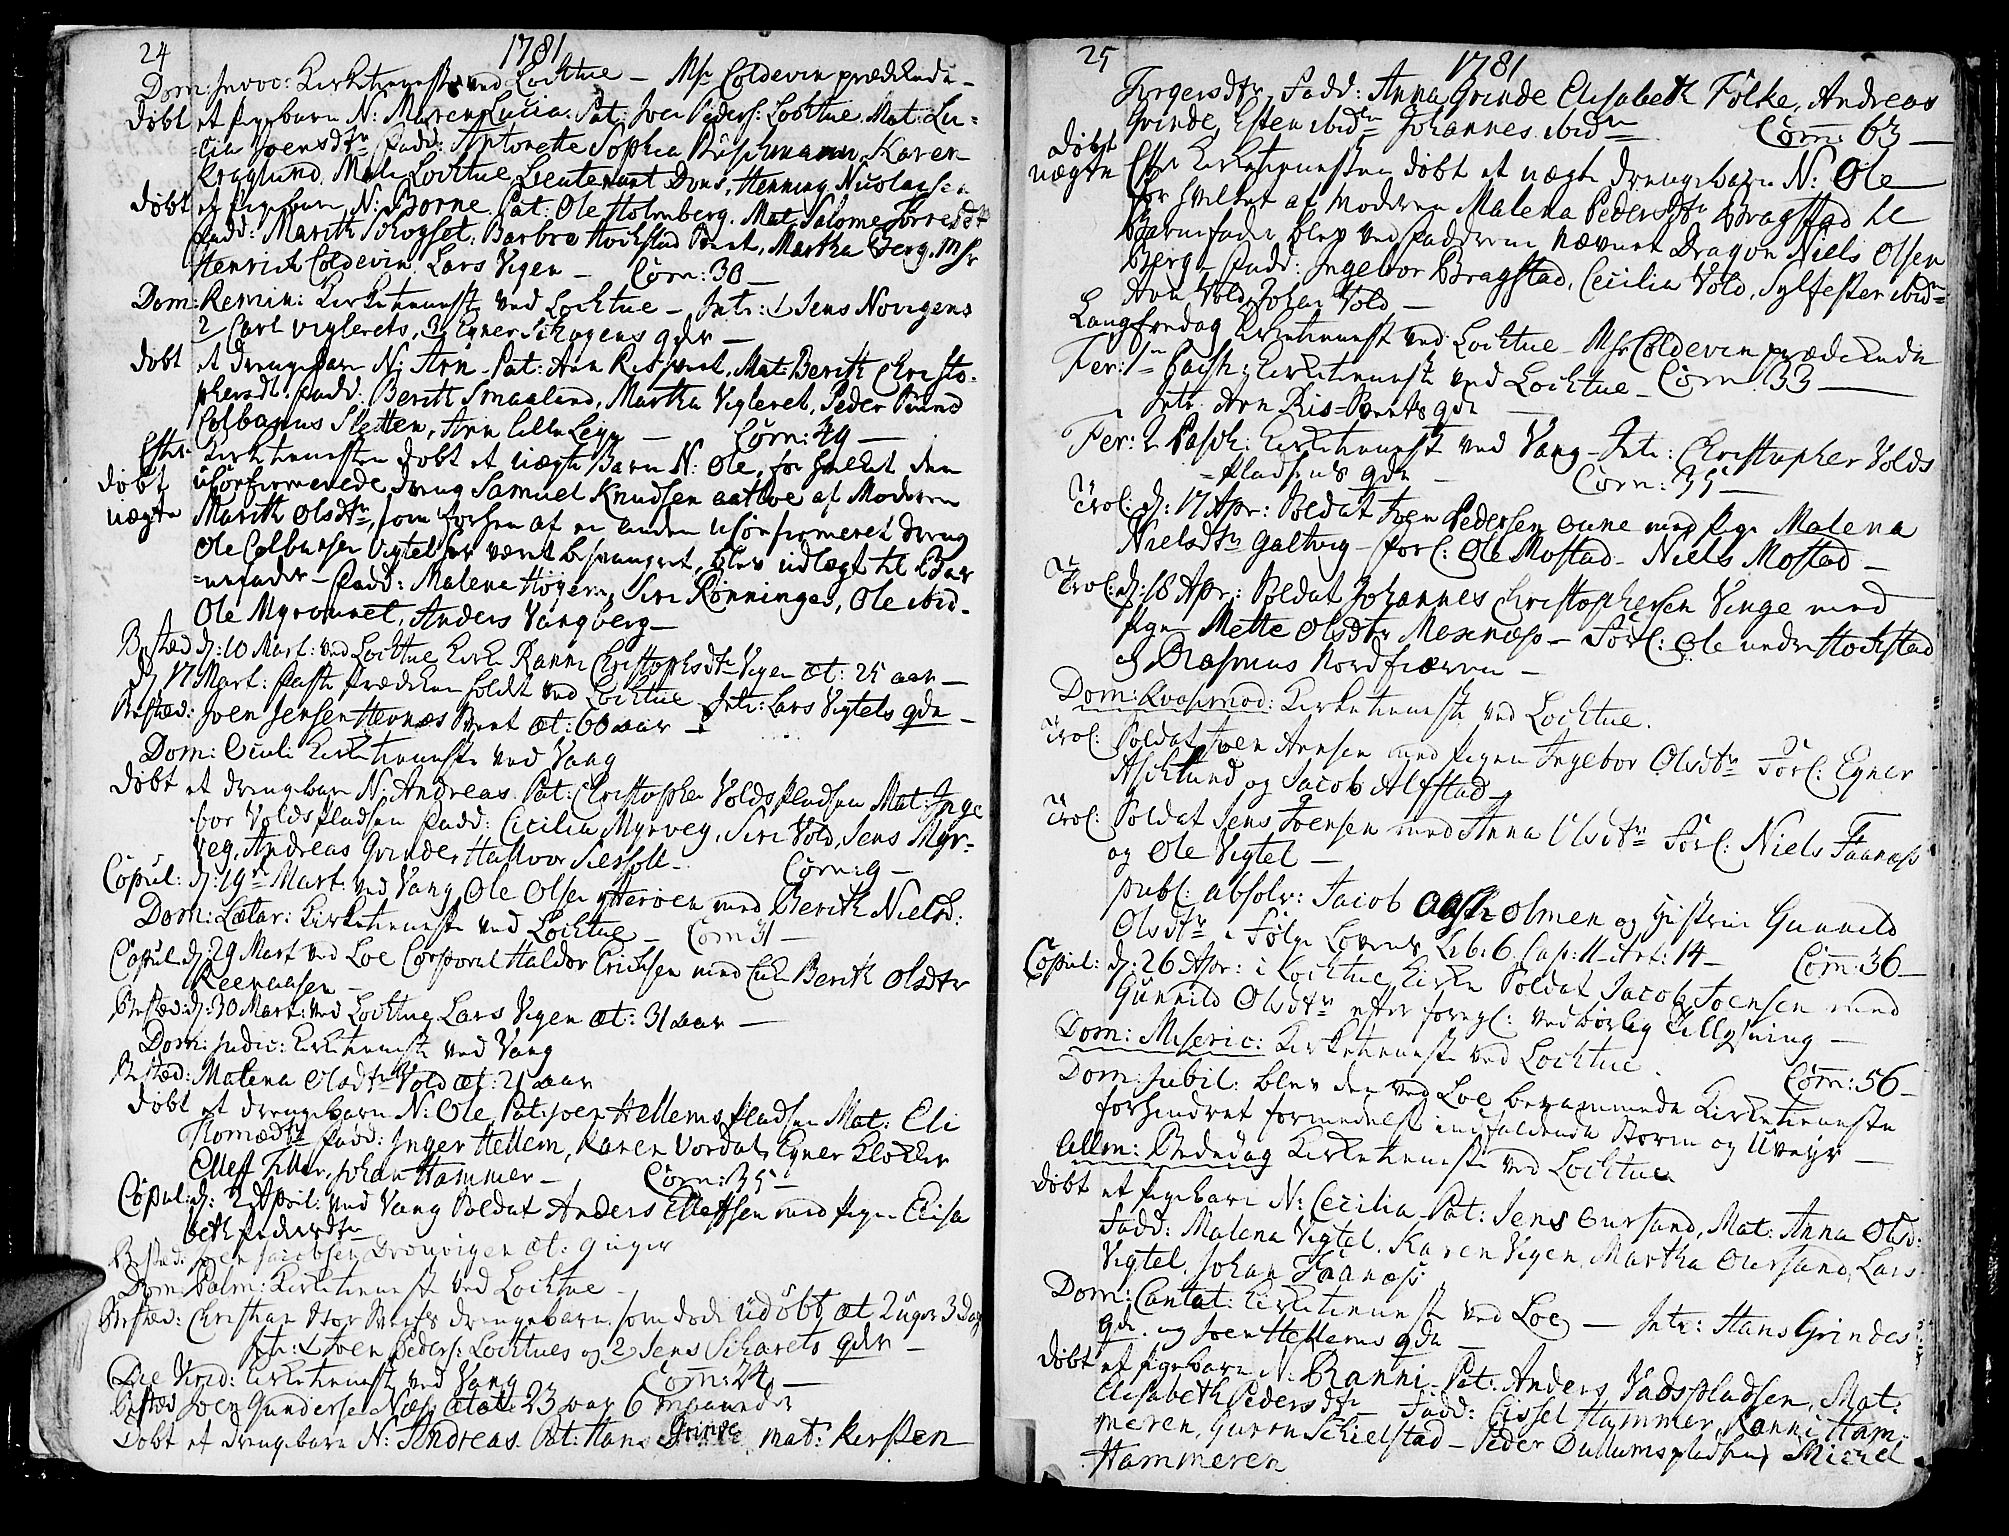 24
1781
Dom: Invoc: Kirketieneste ved Lochtue – Mr Coldevin prædikede –
døbt et Pigebarn N: Maren Lucia. Pat: Joen Peders: Lochtue Mat: Lu=
cia Joensdtr Fadd: Antonette Sophia Buschmann, Karen
Kraglund, Male Lochtue Lieutenant Dons, Henning Nicolaisen
døbt et Pigebarn N: Borne. Pat: Ole Holmberg. Mat: Salome Torresdtr
Fadd: Marith Schogset, Barbro Hochstad, Martha Berg, Mr
Henrich Coldevin, Lars Vigen – Com: 30 –
Dom: Remin: Kirketieneste ved Lochtue – Intr: 1 Jens Norigens
2 Carl Viglerets, 3 Egner Schogens qdr –
døbt et drengebarn N: Arn – Pat: Arn Risp, Mat: Berith Christo-
phersdt. Fadd: Berith Smaaland, Martha Vigleret, Peder
Colbanus Sletten, Arn Lille – Com: 49 –
Efter Kirketienesten døbt et uægte Barn N: Ole, for hvilket den
døbt uconfirmerede dreng Samuel Knudsen af Moderen
uægte Marith Olsdtr, som forhen af en anden uconfirmeret dreng
Ole Colbansen Vigtel har været besvangret, blev udlagt til Bar
=nefader – Fadd: Malena Høgen, Siri Rønningen, Ole ibid –
Ole Myrmnnet, Anders Vangberg –
Bested d: 10 Mart: ved Lochtue Kirke Ranni Christophsdtr Vigen æt: 25 aar –
d 17 Mart: Faste Prædiken holdt ved Lochtue Intr: Lars Vigtels qde –
Bested: Joen Jensen Hernæs æt: 60 aar –
Dom: Oculi Kirketieneste ved Vang
døbt et drengebarn N: Andreas. Pat: Christopher Voldspladsen Mat: Inge
bor Voldspladsen Fadd: Cicilia Myrveg, Siri Vold, Jens Myr-
veg, Andreas Grinde, Haltvor – Com: 9 –
Copul: d: 19de Mart: ved Vang Ole Olsen Herven med Berith Nielsd:
Dom: Lætar: Kirketieneste ved Lochtue – Com 31 –
Copul d: 29 Mart ved Loe Corporal Haldor Erichsen med Enke Berith Olsdtr
Reenaasen –
Bested: d: 30 Mart: ved Lochtue Lars Vigen æt: 31 aar –
Dom: Judic: Kirketieneste ved Vang
Bested: Malena Olsdtr Vold æt: 21 aar
døbt et drengebarn N: Ole, Pat: Joen Hellemspladsen Mat: Eli
Thomædtr Fadd: Inger Hellem, Karen Vordal, Egner Klokker
Elleff Tiller, Johan Hammer – Com: 35 –
Copul: d: 2 April: ved Vang Soldat Anders Ellefsen med Pigen Elisa
beth Pedersdtr
Bested: Joen Jacobsen Dronvigen æt: 9 uger
Dom: Palm: Kirketieneste ved Lochtue –
Bested: Christian drengebarn som døde udøbt æt 2 uger 3 dage
Intr: 1 Joen Peders: Lochtues og 2 Jens Scharets qdr –
Die Virid: Kirketieneste ved Vang Com: 24 –
Bested Joen Gundersen Næss ætat: 23 aar 6 maaneder
Døbt et drengebarn N: Andreas. Pat: Hans Grinde mat: Kirsten
25
1781
Torgersdtr, Fadd: Anna Grinde Elisabeth Følke, Andreas
Grinde, Esten ibidm Johannes ibidm Com: 63 –
døbt Efter Kirketienesten døbt et uægte drengebarn N: Ole
uægte for hvilket af Moderen Malena Pedersdtr Bragstad til
Barnefader blev ved Fadderne nævnet Dragon Niels Olsen
Berg – Fadd: Ingebor Bragstad, Cecilia Vold, Sylfester ibidm
Arn Vold, Johan Vold –
Langfredag Kirketieneste ved Lochtue – Mr Coldevin prædikede
Fer: 1 Pasch: Kirketieneste ved Lochtue – Com: 33 –
Intr. Arn Ris- qde –
Fer: 2 Pasch: Kirketieneste ved Vang – Intr: Christopher Volds
=pladsens qde – Com: 35 –
Trol: d: 17 Apr: Soldat Iven Pedersen Oune med Pige Malena
Nielsdtr Galtvig – Forl: Ole Mostad – Niels Mostad –
Trol: d: 18 Apr: Soldat Johannes Christophersen Vinge med
Pige Mette Olsdtr Mexnæss – Forl: Ole nedre Hochstad
og Rasmus Nordfiæren –
Dom: Quasimod: Kirketieneste ved Lochtue.
Trol: Soldat Iven Arnsen med Pigen Ingebor Olsdtr Forl: Egner
Aschlund og Jacob Alfstad –
Trol: Soldat Jens Joensen med Anna Olsdtr Forl: Niels Faanæss
og Ole Vigtel –
publ: absolv: Jacob Olmen og Hustrue Gunnild
Olsdtr i Følge Lovens Lib: 6 Cap: 11 Art: 14 – Com: 36 –
Copul: d: 26 Apr: i Lochtue Kirke Soldat Jacob Joensen med
Gunnild Olsdtr efter foregl: ved børlig Tillysning –
Dom: Miseric: Kirketieneste ved Lochtue. Com: 56 –
Dom: Jubil: blev den ved Loe berammede Kirketieneste
forhindret formedelst indfaldende Storm og Uveyr –
Allm: Bededag Kirketieneste ved Lochtue
døbt et Pigebarn N: Cecilia – Pat: Jens Oursand, Mat: Anna Olsd:
Fadd: Malena Vigtel, Karen Vigen, Martha Oursand, Lars
Vigtel, Johan Faanæss
Dom: Cantat: Kirketieneste ved Loe – Intr: Hans Grindes
qde. og Joen Hellems qde –
døbt et Pigebarn N: Ranni – Pat: Anders Vadspladsen, Mat:
Elisabeth Pedersdtr Fadd: Cissel Hammer, Ranni Ham-
meren, Guron Schielstad – Peder Oullumspladsen, Michel
Hammeren